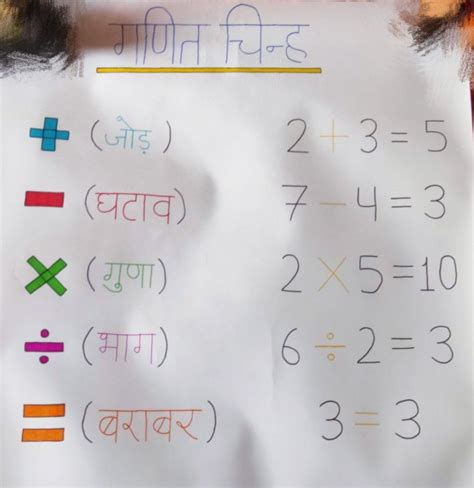 गणित चिन्ह
+ (जोड़) 2 + 3 = 5
- (घटाव) 7 - 4 = 3
× (गुणा) 2 × 5 = 10
÷ (भाग) 6 ÷ 2 = 3
= (बराबर) 3 = 3